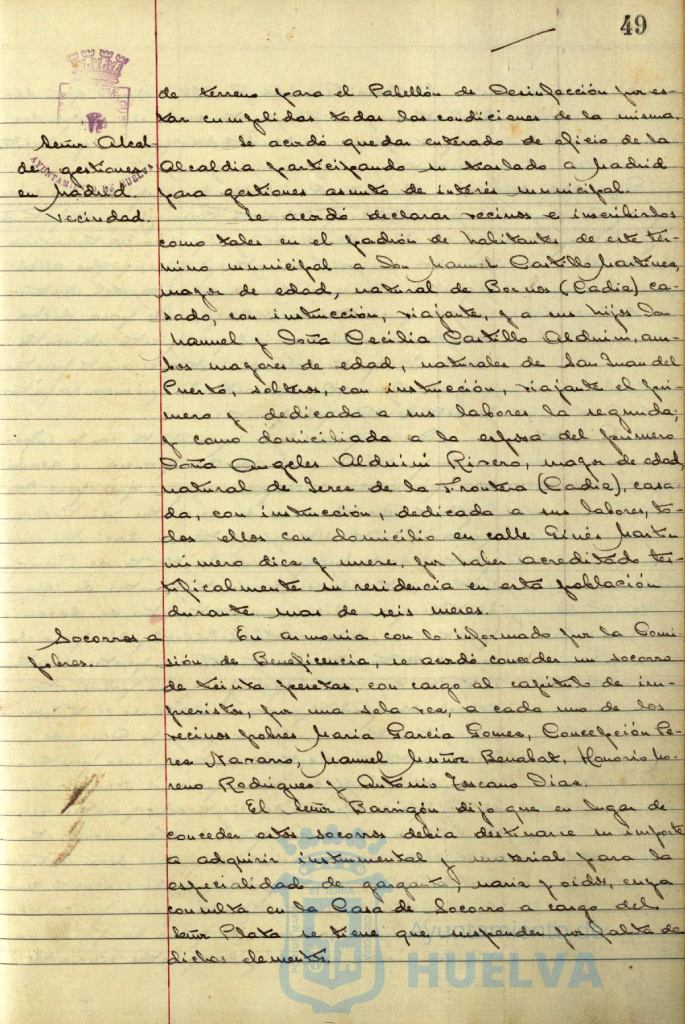 49
de terreno para el Pabellón de Desinfección por es-
tar cumplidas todas las condiciones de la misma.
Señor Alcal-
de gestiones
en Madrid
Se acordó quedar enterado de oficio de la
Alcaldia participando su traslado a Madrid
para gestiones asunto de interés municipal.
Vecindad.
Se acordó declarar vecinos e inscribirlos
como tales en el padrón de habitantes de este tér-
mino municipal a Don Manuel Castillo Martinez,
mayor de edad, natural de Bornos (Cadiz) ca-
sado, con instrucción, viajante, y a sus hijos Don
Manuel y Doña Cecilia Castillo Alduini, am-
bos mayores de edad, naturales de San Juan del
Puerto, solteros, con instrucción, viajante el pri-
mero y dedicada a sus labores la segunda;
y como domiciliada a la esposa del primero
Doña Angeles Alduini Rivero, mayor de edad,
natural de Jerez de la Frontera (Cadiz), casa-
da, con instrucción, dedicada a sus labores, to-
dos ellos con domicilio en calle Ginés Martin
número diez y nueve, por haber acreditado tes-
tificalmente su residencia en esta población
durante mas de seis meses.
Socorros a
pobres.
En armonia con lo informado por la Comi-
sión de Beneficencia, se acordó conceder un socorro
de treinta pesetas, con cargo al capítulo de im-
previstos, por una sola vez, a cada uno de los
vecinos pobres Maria Garcia Gomez, Concepción Pe-
rez Navarro, Manuel Muñoz Benabat, Honorio Mo-
reno Rodriguez y Antonio Toscano Dias.
El Señor Barrigón dijo que en lugar de
conceder estos socorros debia destinarse su importe
a adquirir instrumental y material para la
especialidad de garganta, nariz y oidos, cuya
consulta en la Casa de Socorro a cargo del
Señor Plata se tiene que suspender por falta de
dichos elementos.
AYUNTAMIENTO DE HUELVA
HUELVA